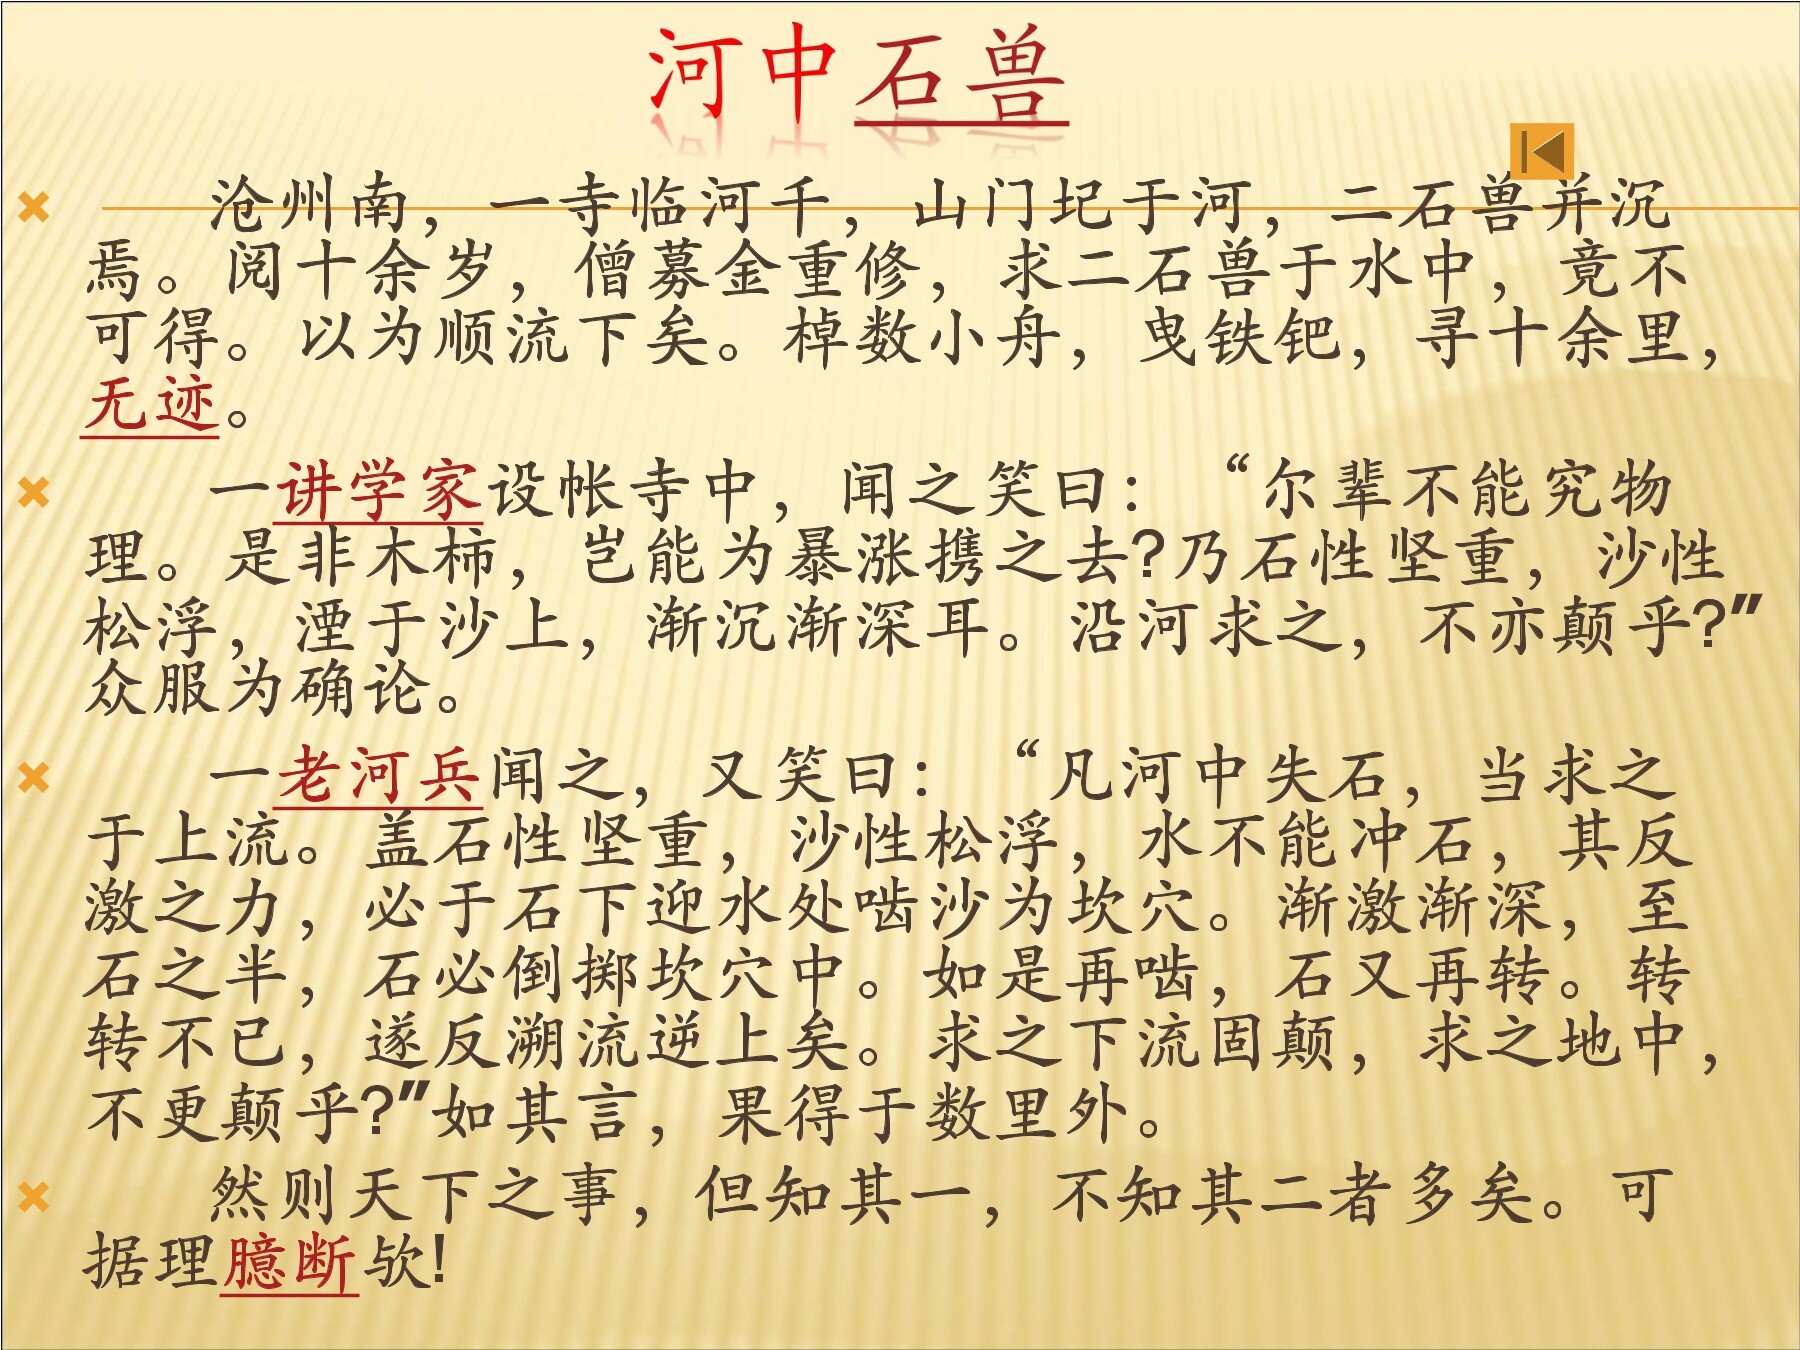 河中石兽
沧州南，一寺临河干，山门圮于河，二石兽并沉
焉。阅十余岁，僧募金重修，求二石兽于水中，竟不
可得。以为顺流下矣。棹数小舟，曳铁钯，寻十余里，
无迹。
一讲学家设帐寺中，闻之笑曰：“尔辈不能究物
理。是非木杮，岂能为暴涨携之去?乃石性坚重，沙性
松浮，湮于沙上，渐沉渐深耳。沿河求之，不亦颠乎?”
众服为确论。
一老河兵闻之，又笑曰：“凡河中失石，当求之
于上流。盖石性坚重，沙性松浮，水不能冲石，其反
激之力，必于石下迎水处啮沙为坎穴。渐激渐深，至
石之半，石必倒掷坎穴中。如是再啮，石又再转。转
转不已，遂反溯流逆上矣。求之下流固颠，求之地中，
不更颠乎?”如其言，果得于数里外。
然则天下之事，但知其一，不知其二者多矣。可
据理臆断欤!